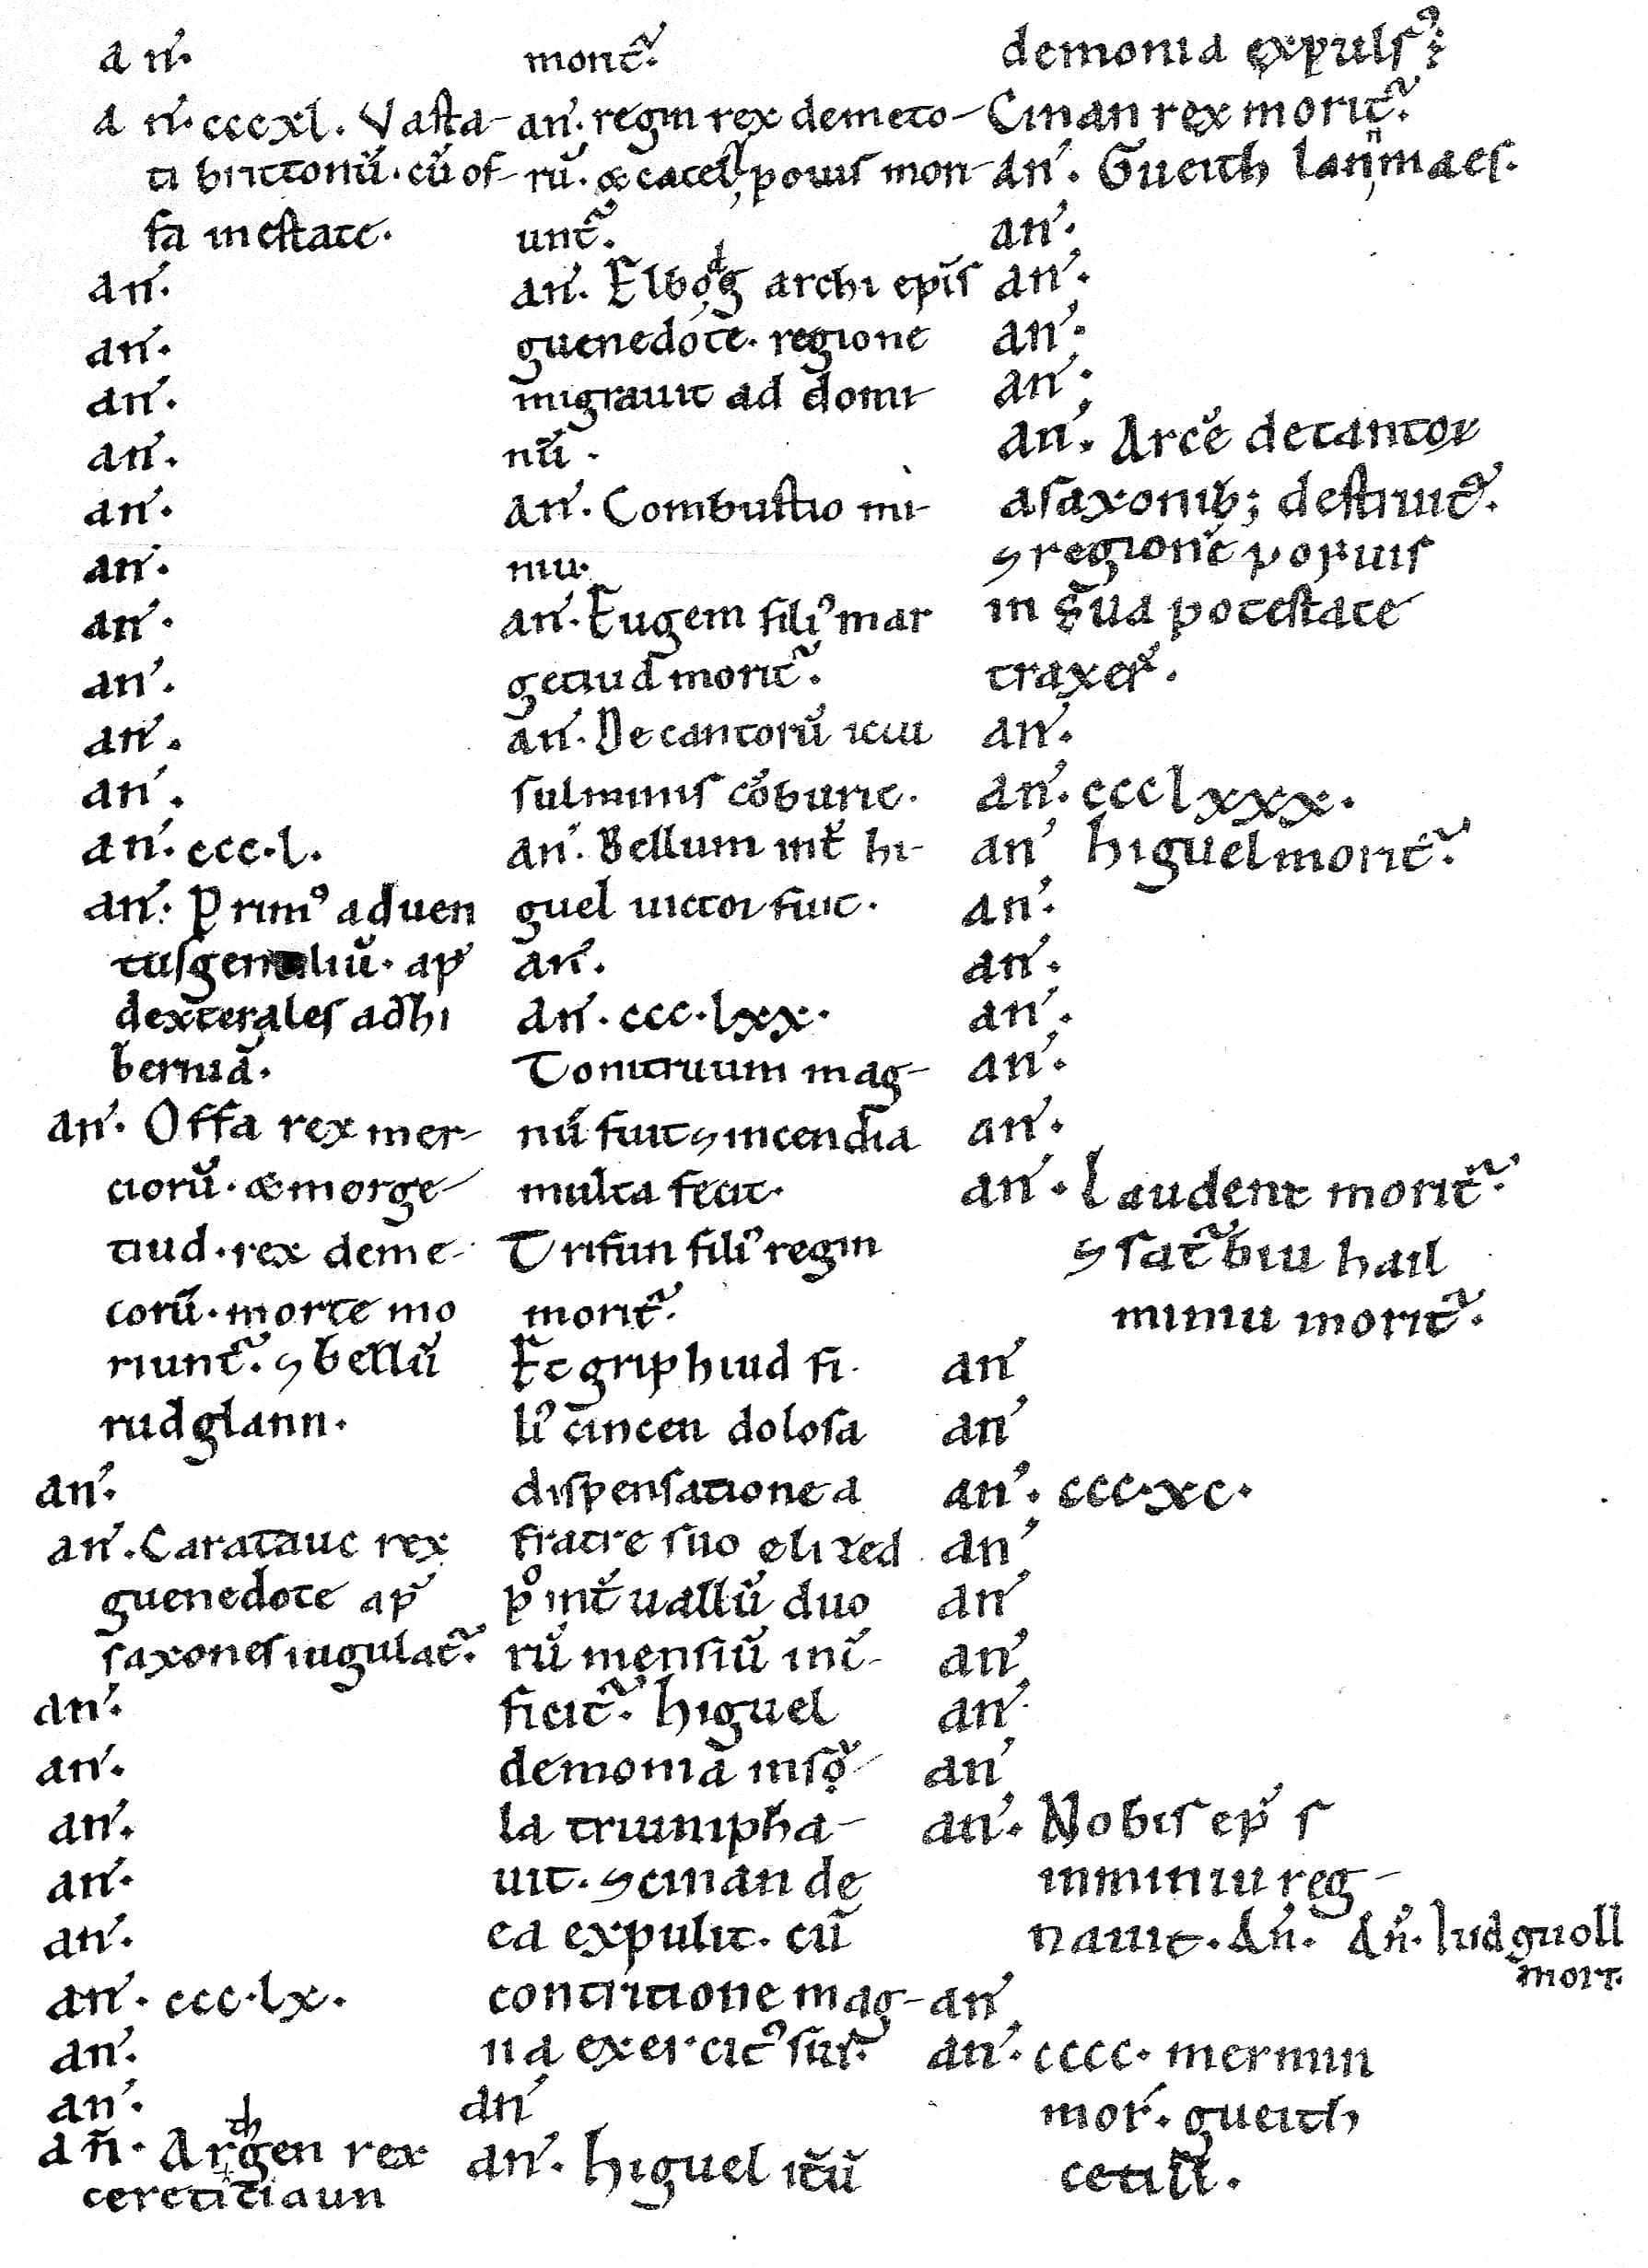 an̄.
an̄. cccxl. Vasta-
ti brittonū. cū of-
fa in estate.
an̄.
an̄.
an̄.
an̄.
an̄.
an̄.
an̄.
an̄.
an̄.
an̄.
an̄. ccc.l.
an̄. Primꝰ aduen
tus gentiliū. ap̄
dexterales ad hi
berniā.
an̄. Offa rex mer-
ciorū. & morge-
tiud. rex deme-
torū. morte mo
riunt̄. ⁊ bellū
rudglann.
an̄.
an̄. Caratauc rex
guenedote ap̄
saxones iugulat̄.
an̄.
an̄.
an̄.
an̄.
an̄.
an̄. ccc.lx.
an̄.
an̄.
an̄. Arthgen rex
cereticiaun
morit̄.
an̄. regin rex demeto-
rū. & catell, pouis mori-
unt̄.
an̄. Elbodg archi ep̄is
guenedote. regione
migrauit ad domi-
nū.
an̄. Combustio mi-
niu.
an̄. Eugem filiꝰ mar
getiud morit̄.
an̄. Decantorū ictu
fulminis cōburit.
an̄. Bellum int̄ hi-
guel uictor fuit.
an̄.
an̄. ccc.lxx.
Tonitruum mag-
nū fuit ⁊ incendia
multa fecit.
Trifun filiꝰ regin
morit̄.
Et griphiud fi-
liꝰ cincen dolosa
dispensatione a
fratre suo elized
p̊ int̄uallū duo
rū mensiū int̄-
ficit̄. higuel
demonia inso̜-
la triumpha-
uit. ⁊ cinan de
ea expulit. cū
contritione mag-
na exercitꝰ sui.
an̄
an̄. higuel it̄ū
demonia expulsꝰ;
Cinan rex morit̄.
an̄. Gueith lannmaes.
an̄.
an̄.
an̄.
an̄.
an̄. Arcē decantor
a saxonib; destruit̄.
⁊ regionē poyuis
in sua potestate
traxer̄.
an̄.
an̄. ccclxxx.
an̄ higuel morit̄.
an̄.
an̄.
an̄.
an̄.
an̄.
an̄. laudent morit̄.
⁊ sat̄biu hail
miniu morit̄.
an̄
an̄
an̄. ccc.xc.
an̄
an̄
an̄
an̄
an̄
an̄. Nobis ep̄s
in miniu reg-
nauit. An̄. An̄. Iudguoll
mort.
an̄
an̄. cccc. mermin
mor̄. gueith
cetill.